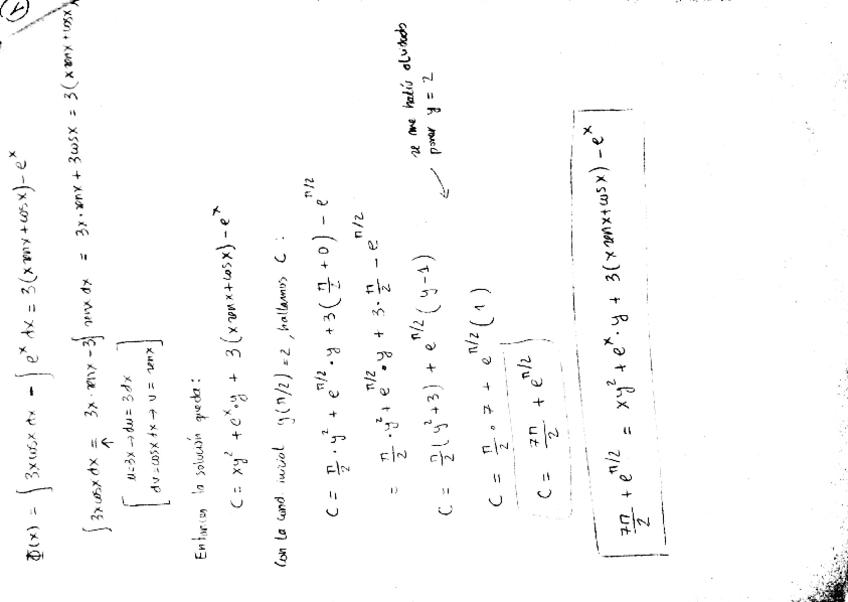 1
Φ(x) = ∫ 3x cosx dx - ∫ e^x dx = 3(x senx + cosx) - e^x
∫ 3x cosx dx = 3x · senx - 3∫ senx dx = 3x · senx + 3cosx = 3(x senx + cosx)
↑
[ u = 3x → du = 3dx
dv = cosx dx → v = senx ]
Entonces la solución queda:
C = xy² + e^x · y + 3(x senx + cosx) - e^x
Con la cond inicial y(π/2) = 2, hallamos C :
C = π/2 · y² + e^π/2 · y + 3(π/2 + 0) - e^π/2
= π/2 · y² + e^π/2 · y + 3 · π/2 - e^π/2
C = π/2 (y² + 3) + e^π/2 (y - 1)
se me había olvidado
poner y = 2
C = π/2 · 7 + e^π/2 (1)
C = 7π/2 + e^π/2
7π/2 + e^π/2 = xy² + e^x · y + 3(x senx + cosx) - e^x